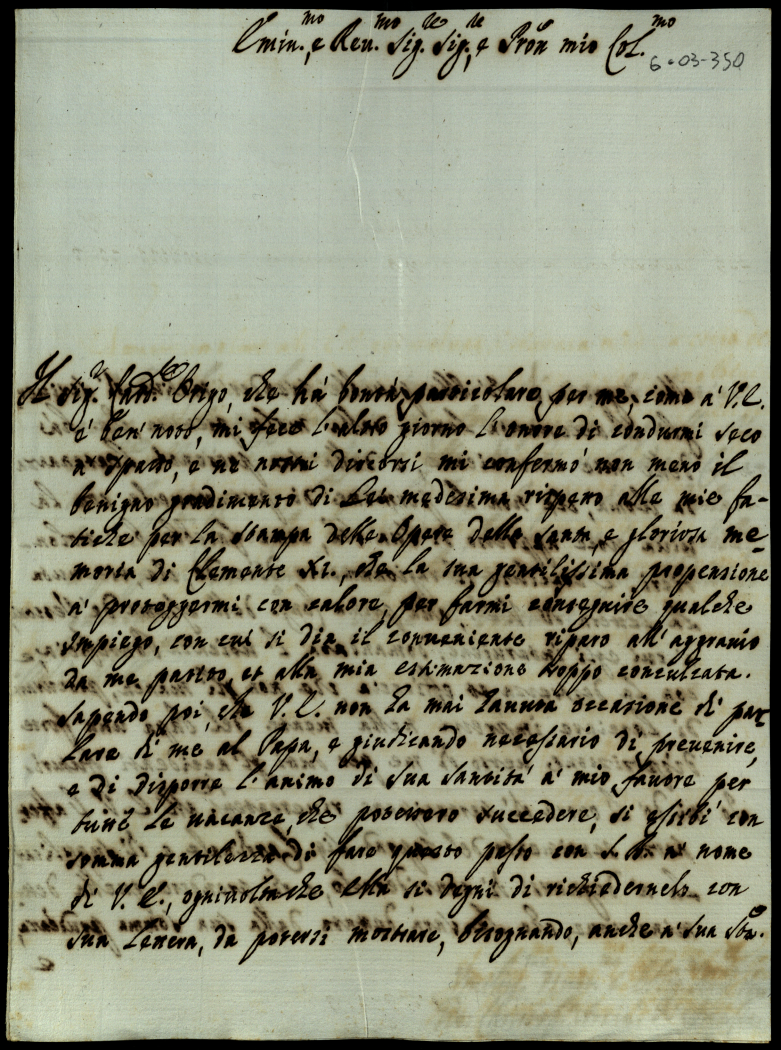 Emin.mo, e Reu.mo Sig.re Sig.re, e Pron mio Col.mo
6-03-350
Il Sig.r Card.le Origo, che há bontà particolare per me, come á V.E.
é ben noto, mi fece l'altro giorno l'onore di condurmi seco
a spasso, e ne nostri discorsi mi confermó non meno il
benigno gradimento di Lei medesima rispetto alle mie fa-
tiche per la stampa delle Opere della santa, e gloriosa me-
moria di Clemente XI., che la sua gentilissima propensione
á proteggermi con calore, per farmi conseguire qualche
impiego, con cui si dia il conueniente riparo all'aggrauio
da me patito, et alla mia estimazione troppo conculcata.
Sapendo poi, che V.E. non ha mai hauuta occasione di par
lare di me al Papa, e giudicando necessario di preuenire,
e di disporre l'animo di Sua Santità á mio fauore per
tutte le uacanze, che potessero succedere, si esibí con
somma gentilezza di fare questo passo con S. Stà á nome
di V. E., ogniuolta che Ella si degni di richiedernelo con
sua Lettera, da potersi mostrare, bisognando, anche á Sua Stà.